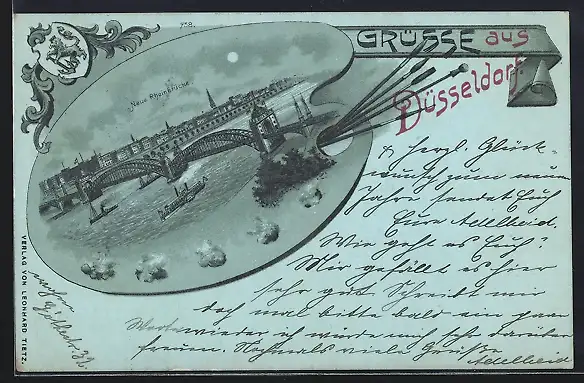 758.
Neue Rheinbrücke.
GRÜSSE aus
Düsseldorf.
VERLAG VON LEONHARD TIETZ.
& herzl. Glück-
wunsch zum neuen
Jahre sendet Euch
Eure Adelheid.
Wie geht es Euch?
Mir gefällt es hier
sehr gut Schreibt mir
doch mal bitte bald ein paar
wieder ich würde mich sehr darüber
freuen. Nochmals viele Grüße
Adelheid